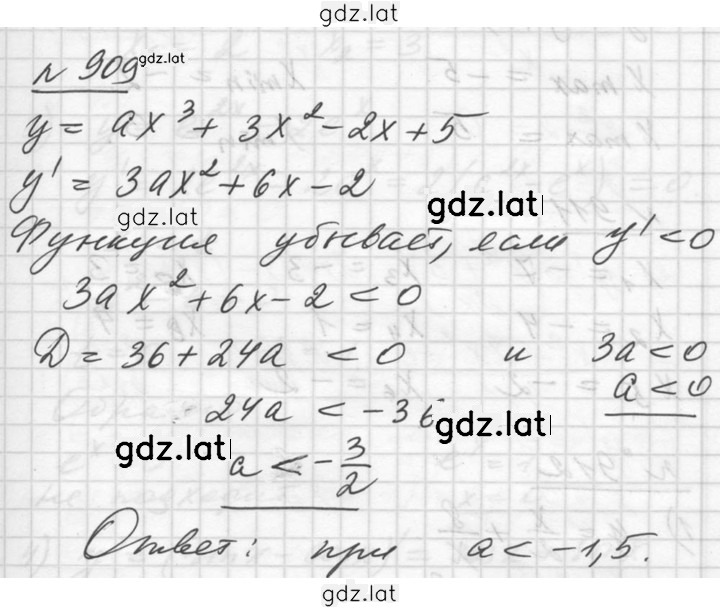 gdz.lat
№ 909 gdz.lat
y = ax³ + 3x² - 2x + 5
y' = 3ax² + 6x - 2
gdz.lat gdz.lat
Функция убывает, если y' < 0
3ax² + 6x - 2 < 0
D = 36 + 24a < 0 и 3a < 0
a < 0
24a < -36
gdz.lat gdz.lat
a < -3/2
Ответ: при a < -1,5.
gdz.lat